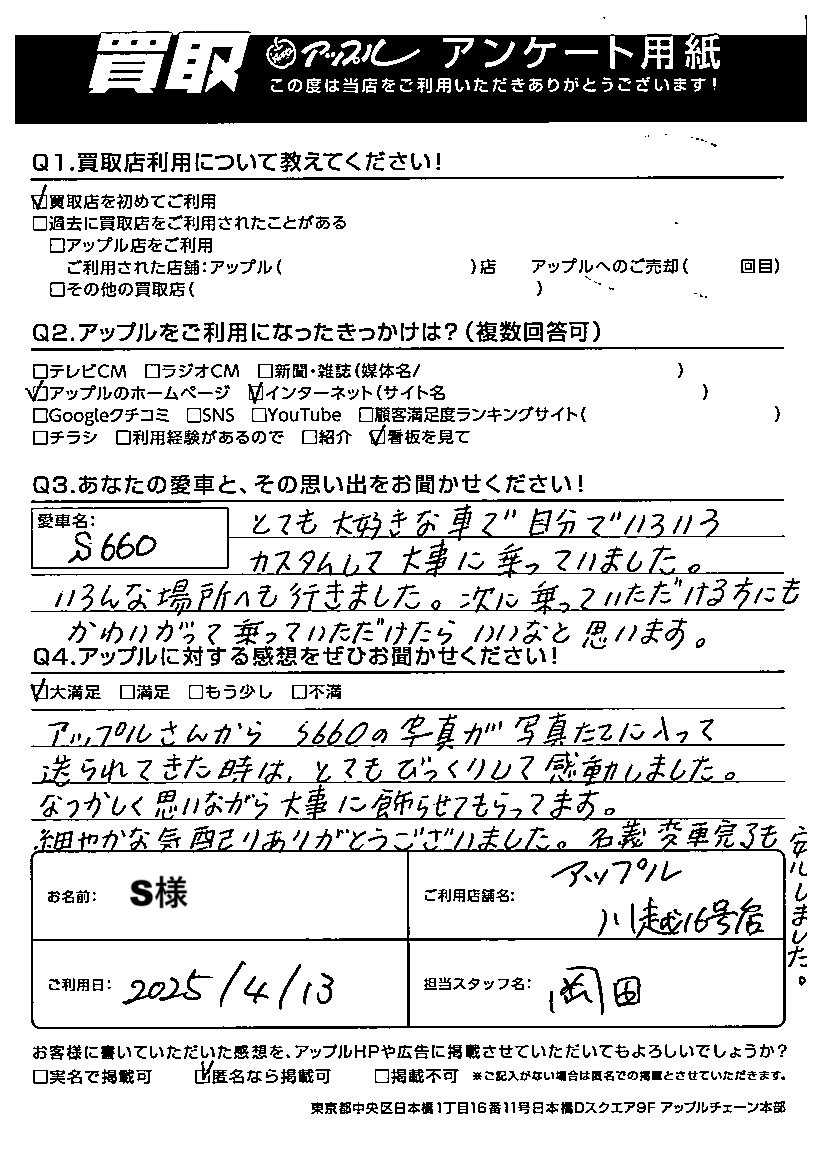 買取 アップル アンケート用紙
この度は当店をご利用いただきありがとうございます!
Q1.買取店利用について教えてください!
☑買取店を初めてご利用
□過去に買取店をご利用されたことがある
□アップル店をご利用
ご利用された店舗:アップル( )店 アップルへのご売却( 回目)
□その他の買取店( )
Q2.アップルをご利用になったきっかけは?(複数回答可)
□テレビCM □ラジオCM □新聞・雑誌(媒体名/ )
☑アップルのホームページ ☑インターネット(サイト名 )
□Googleクチコミ □SNS □YouTube □顧客満足度ランキングサイト( )
□チラシ □利用経験があるので □紹介 ☑看板を見て
Q3.あなたの愛車と、その思い出をお聞かせください!
愛車名: S660
とても大好きな車で自分でいろいろ
カスタムして大事に乗っていました。
いろんな場所へも行きました。次に乗っていただける方にも
かわいがって乗っていただけたらいいなと思います。
Q4.アップルに対する感想をぜひお聞かせください!
☑大満足 □満足 □もう少し □不満
アップルさんから S660の写真が写真たてに入って
送られてきた時は、とてもびっくりして感動しました。
なつかしく思いながら大事に飾らせてもらってます。
細やかな気配りありがとうございました。名義変更完了も
安心しました。
お名前: S様
ご利用店舗名: アップル
川越16号店
ご利用日: 2025/4/13
担当スタッフ名: 岡田
お客様に書いていただいた感想を、アップルHPや広告に掲載させていただいてもよろしいでしょうか?
□実名で掲載可 ☑匿名なら掲載可 □掲載不可 ※ご記入がない場合は匿名での掲載とさせていただきます。
東京都中央区日本橋1丁目16番11号日本橋Dスクエア9F アップルチェーン本部